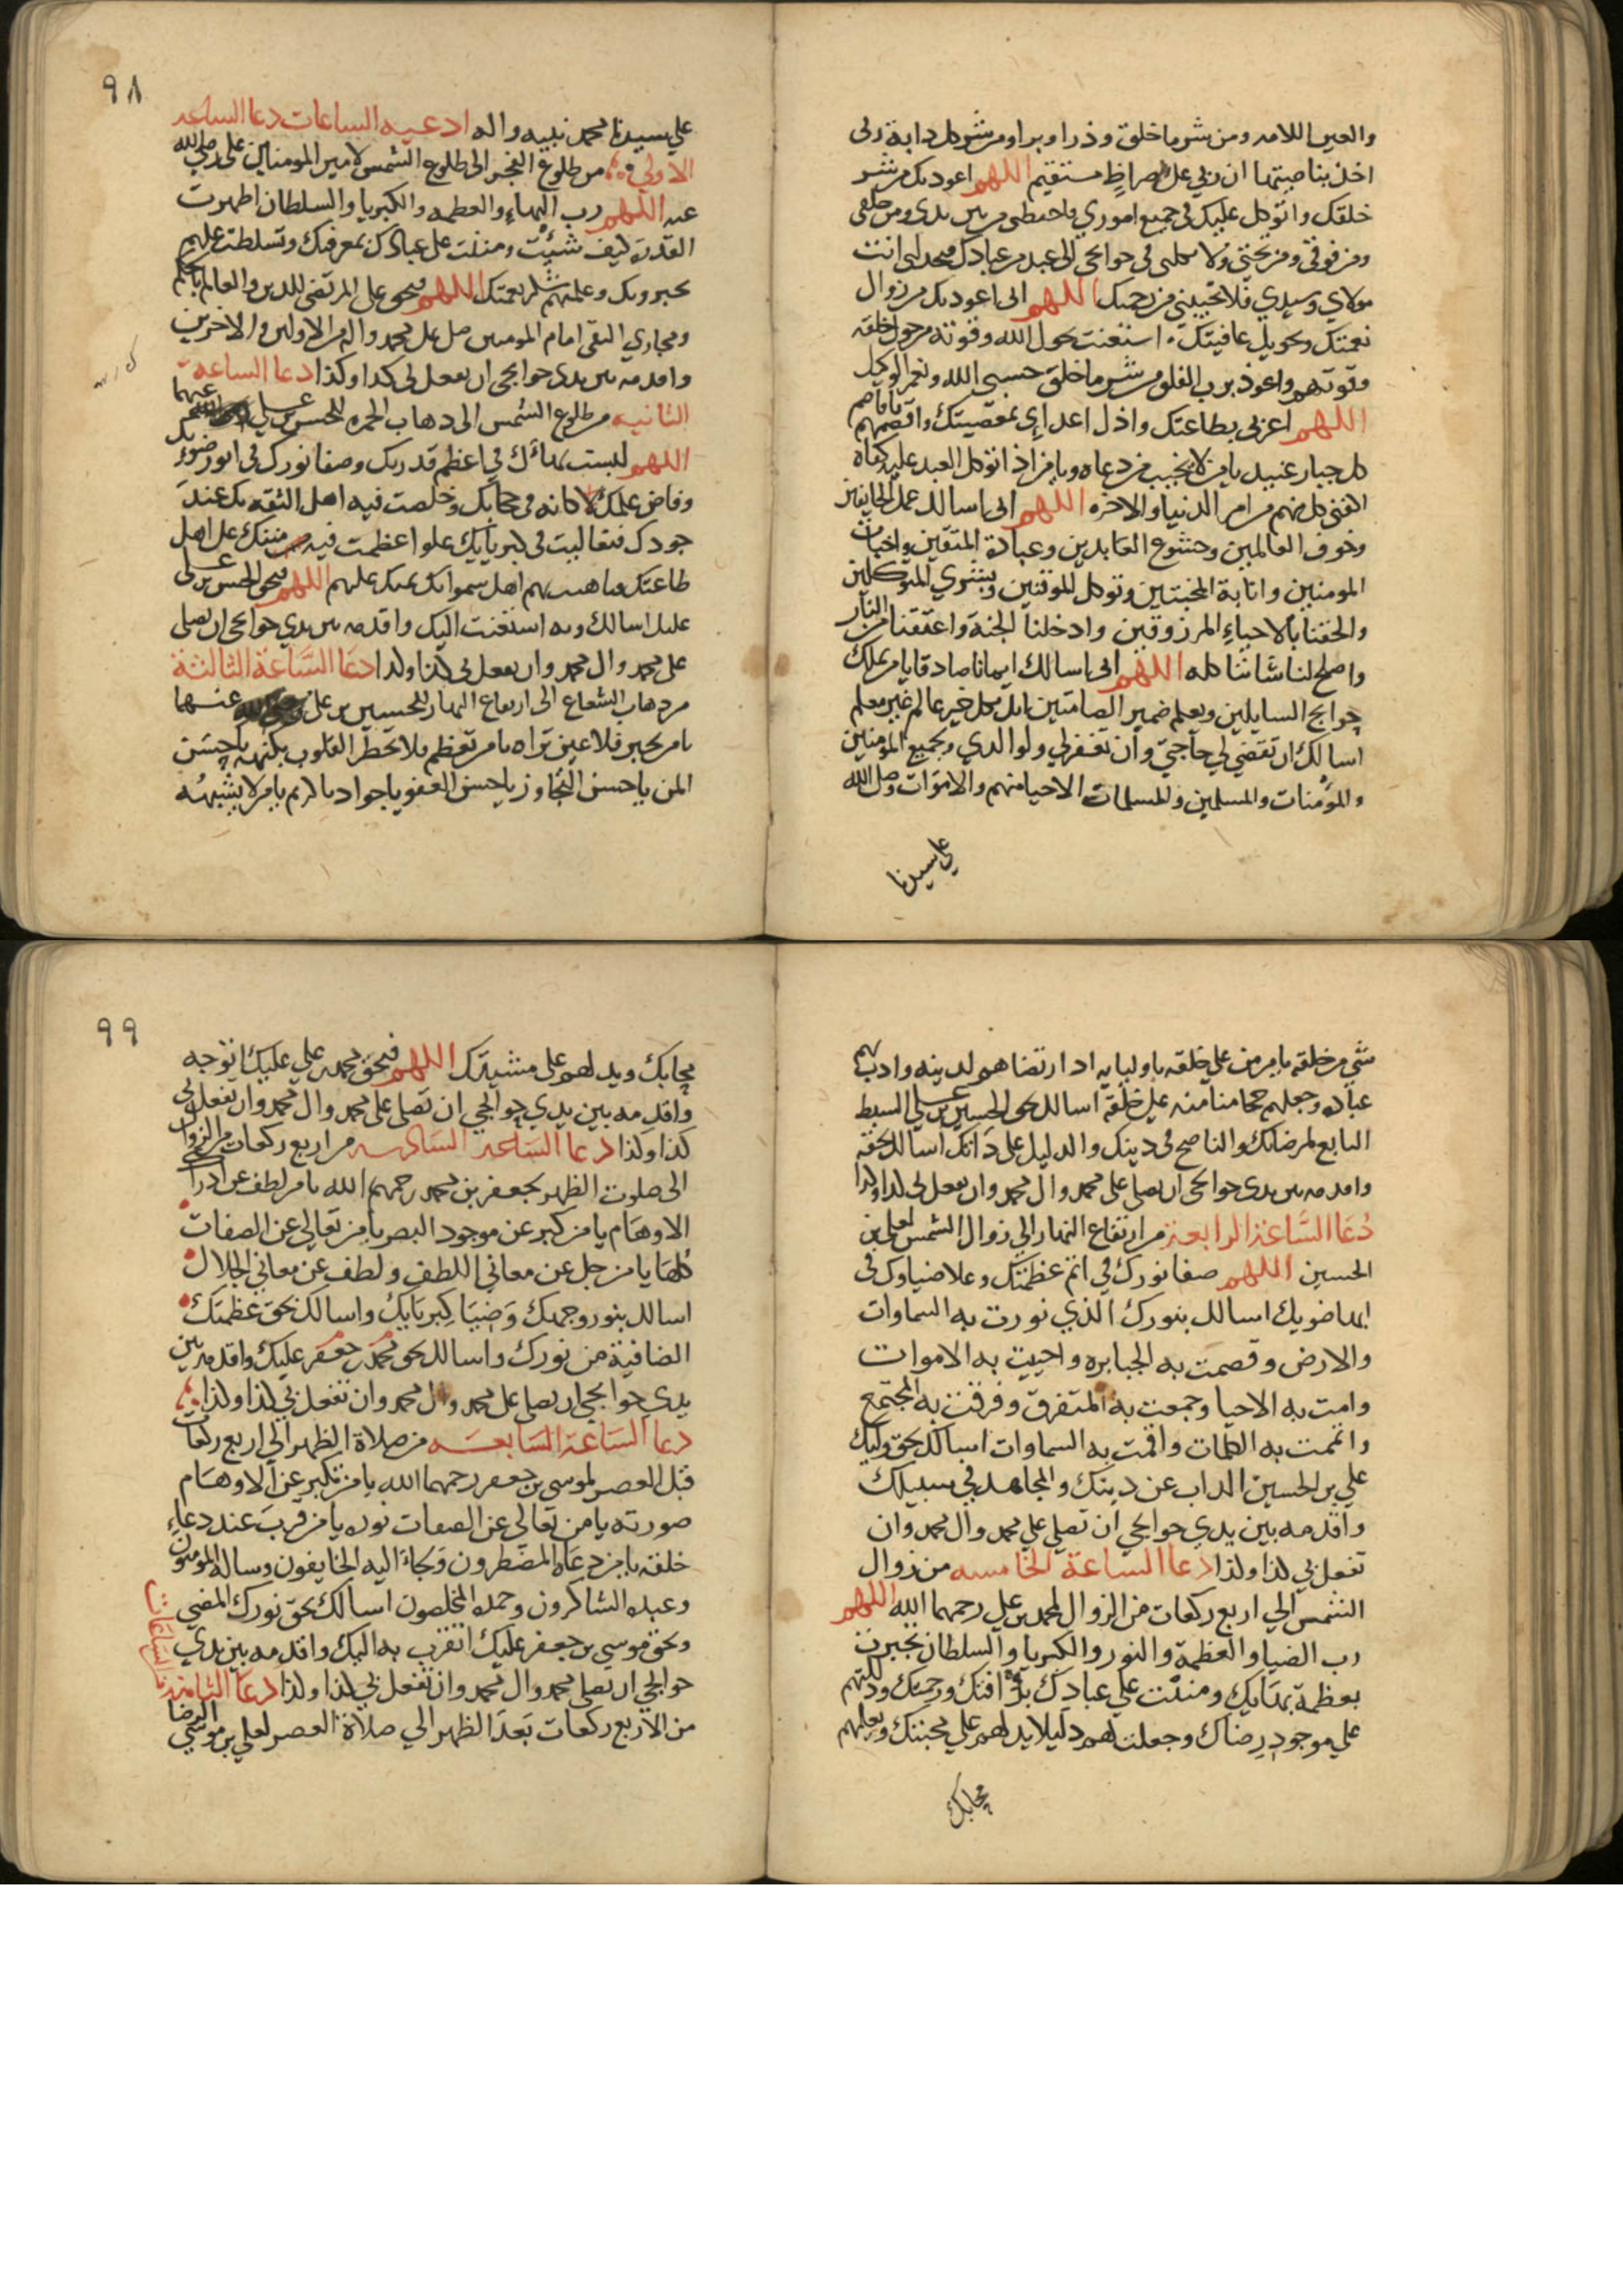 والعين اللامه ومن شر ما خلق وذرا وبرا ومن شر كل دابة ربي
اخذ بناصيتها ان ربي على صراط مستقيم اللهم اعوذ بك من شر
خلقك واتوكل عليك في جميع اموري فاحفظني من بين يدي ومن خلفي
ومن فوقي ومن تحتي ولا تكلني في حوايجي الى عبد من عبادك فيخذلني انت
مولاي وسيدي فلا تخيبني من رحمتك اللهم اني اعوذ بك من زوال
نعمتك وتحويل عافيتك استعنت بحول الله وقوته من حول خلقه
وقوتهم واعوذ برب الفلق من شر ما خلق حسبي الله ونعم الوكيل
اللهم اعزني بطاعتك واذل اعدايي بمعصيتك واقصمهم يا قاصم
كل جبار عنيد يا من لا يخيب من دعاه ويا من اذا توكل العبد عليه كفاه
اكفني كل مهم من امر الدنيا والاخره اللهم اني اسالك عمل الخايفين
وخوف العالمين وخشوع العابدين وعبادة المتقين واخبات
المومنين وانابة المخبتين وتوكل الموقنين وبشرى المتوكلين
والحقنا بالاحياء المرزوقين وادخلنا الجنة واعتقنا من النار
واصلح لنا شاننا كله اللهم اني اسالك ايمانا صادقا يا من يملك
حوايج السايلين ويعلم ضمير الصامتين انك بكل خير عالم غير معلم
اسالك ان تقضي لي حاجتي وان تغفر لي ولوالدي وجميع المؤمنين
والمؤمنات والمسلمين والمسلمات الاحيا منهم والاموات وصل الله
علي سيدنا
٩٨
علي سيدنا محمد نبيه واله ادعيه الساعات دعا الساعه
الاولي من طلوع الفجر الى طلوع الشمس لامير المومنين علي رضي الله
عنه اللهم رب البهاء والعظمه والكبريا والسلطان اظهرت
القدرة كيف شئت ومننت على عبادك بمعرفتك وتسلطت عليهم
بجبروتك وعلمتهم شكر نعمتك اللهم فبحق علي المرتضى للدين والعالم بالحكم
ومجاري التقى امام المومنين صل على محمد واله في الاولين والاخرين
واقدمه بين يدي حوايجي ان تفعل لي كذا وكذا دعا الساعه
الثانيه من طلوع الشمس الى ذهاب الحمره للحسن بن علي عنهما
اللهم لبست بهاءك في اعظم قدرتك وصفا نورك في انور ضوئك
وفاض علمك في حجابك وخلصت فيه اهل الثقه بك عند
جودك فتعاليت في كبريايك علوا عظمت فيه منتك على اهل
طاعتك فباهيت بهم اهل سمواتك بمنتك عليهم اللهم فبحق الحسن بن علي
عليك اسالك وبه استغثت اليك واقدمه بين يدي حوايجي ان تصلي
على محمد وال محمد وان تفعل لي كذا وكذا دعا الساعة الثالثة
من ذهاب الشعاع الى ارتفاع النهار للحسين بن علي عنهما
يا من تجبر فلا عين تراه يا من تعظم فلا تخطر القلوب بكنهه يا حسن
المن يا حسن التجاوز يا حسن العفو يا جواد يا كريم يا من لا يشبهه
شي من خلقه يا من من على خلقه باوليايه اذ ارتضاهم لدينه وادب بهم
عباده وجعلهم حججا منا منه على خلقه اسالك بحق الحسين بن علي السبط
التابع لمرضاتك والناصح في دينك والدليل على ذاتك اسالك بحقه
واقدمه بين يدي حوايجي ان تصلي على محمد وال محمد وان تفعل لي كذا وكذا
دعا الساعة الرابعة من ارتفاع النهار الي زوال الشمس لعلي بن
الحسين اللهم صفا نورك في اتم عظمتك وعلا ضياوك في
ابها ضويك اسالك بنورك الذي نورت به السماوات
والارض وقصمت به الجبابره واحييت به الاموات
وامت به الاحيا وجمعت به المتفرق وفرقت به المجتمع
واتممت به الكلمات واقمت به السماوات اسالك بحق وليك
علي بن الحسين الذاب عن دينك والمجاهد في سبيلك
واقدمه بين يدي حوايجي ان تصلي علي محمد وال محمد وان
تفعل بي كذا وكذا دعا الساعة الخامسه من زوال
الشمس الي اربع ركعات من الزوال لمحمد بن علي رحمهما الله اللهم
رب الضيا والعظمة والنور والكبريا والسلطان تجبرت
بعظمة بهايك ومننت علي عبادك برأفتك ورحمتك ودللتهم
علي موجود رضاك وجعلت لهم دليلا يدلهم علي محبتك ويعلمهم
محابك
٩٩
محابك ويدلهم على مشيتك اللهم فبحق محمد بن علي عليك اتوجه
واقدمه بين يدي حوايجي ان تصلي على محمد وال محمد وان تفعل لي
كذا وكذا دعا الساعة السادسه من اربع ركعات من الزوال
الى صلوت الظهر لجعفر بن محمد رحمهم الله يا من لطف عن ادراك
الاوهام يا من كبر عن موجود البصر يا من تعالي عن الصفات
كلها يا من جل عن معاني اللطف ولطف عن معاني الجلال
اسالك بنور وجهك وضيا كبريايك واسالك بحق عظمتك
الصافية من نورك واسالك بحق محمد جعفر عليك واقدمه بين
يدي حوايجي ان تصلي على محمد وال محمد وان تفعل بي كذا وكذا
دعا الساعة السابعه من صلاة الظهر الي اربع ركعات
قبل العصر لموسى بن جعفر رحمهما الله يا من تكبر عن الاوهام
صورته يا من تعالي عن الصفات نوره يا من قرب عند دعاء
خلقه يا من دعاه المضطرون ولجاء اليه الخايفون وساله المؤمنون
وعبده الشاكرون وحمده المخلصون اسالك بحق نورك المضي
وبحق موسي بن جعفر عليك اتقرب به اليك واقدمه بين يدي
حوايجي ان تصلي محمد وال محمد وان تفعل بي كذا وكذا دعا الثامنه
من الاربع ركعات بعد الظهر الي صلاة العصر لعلي بن موسي الرضا